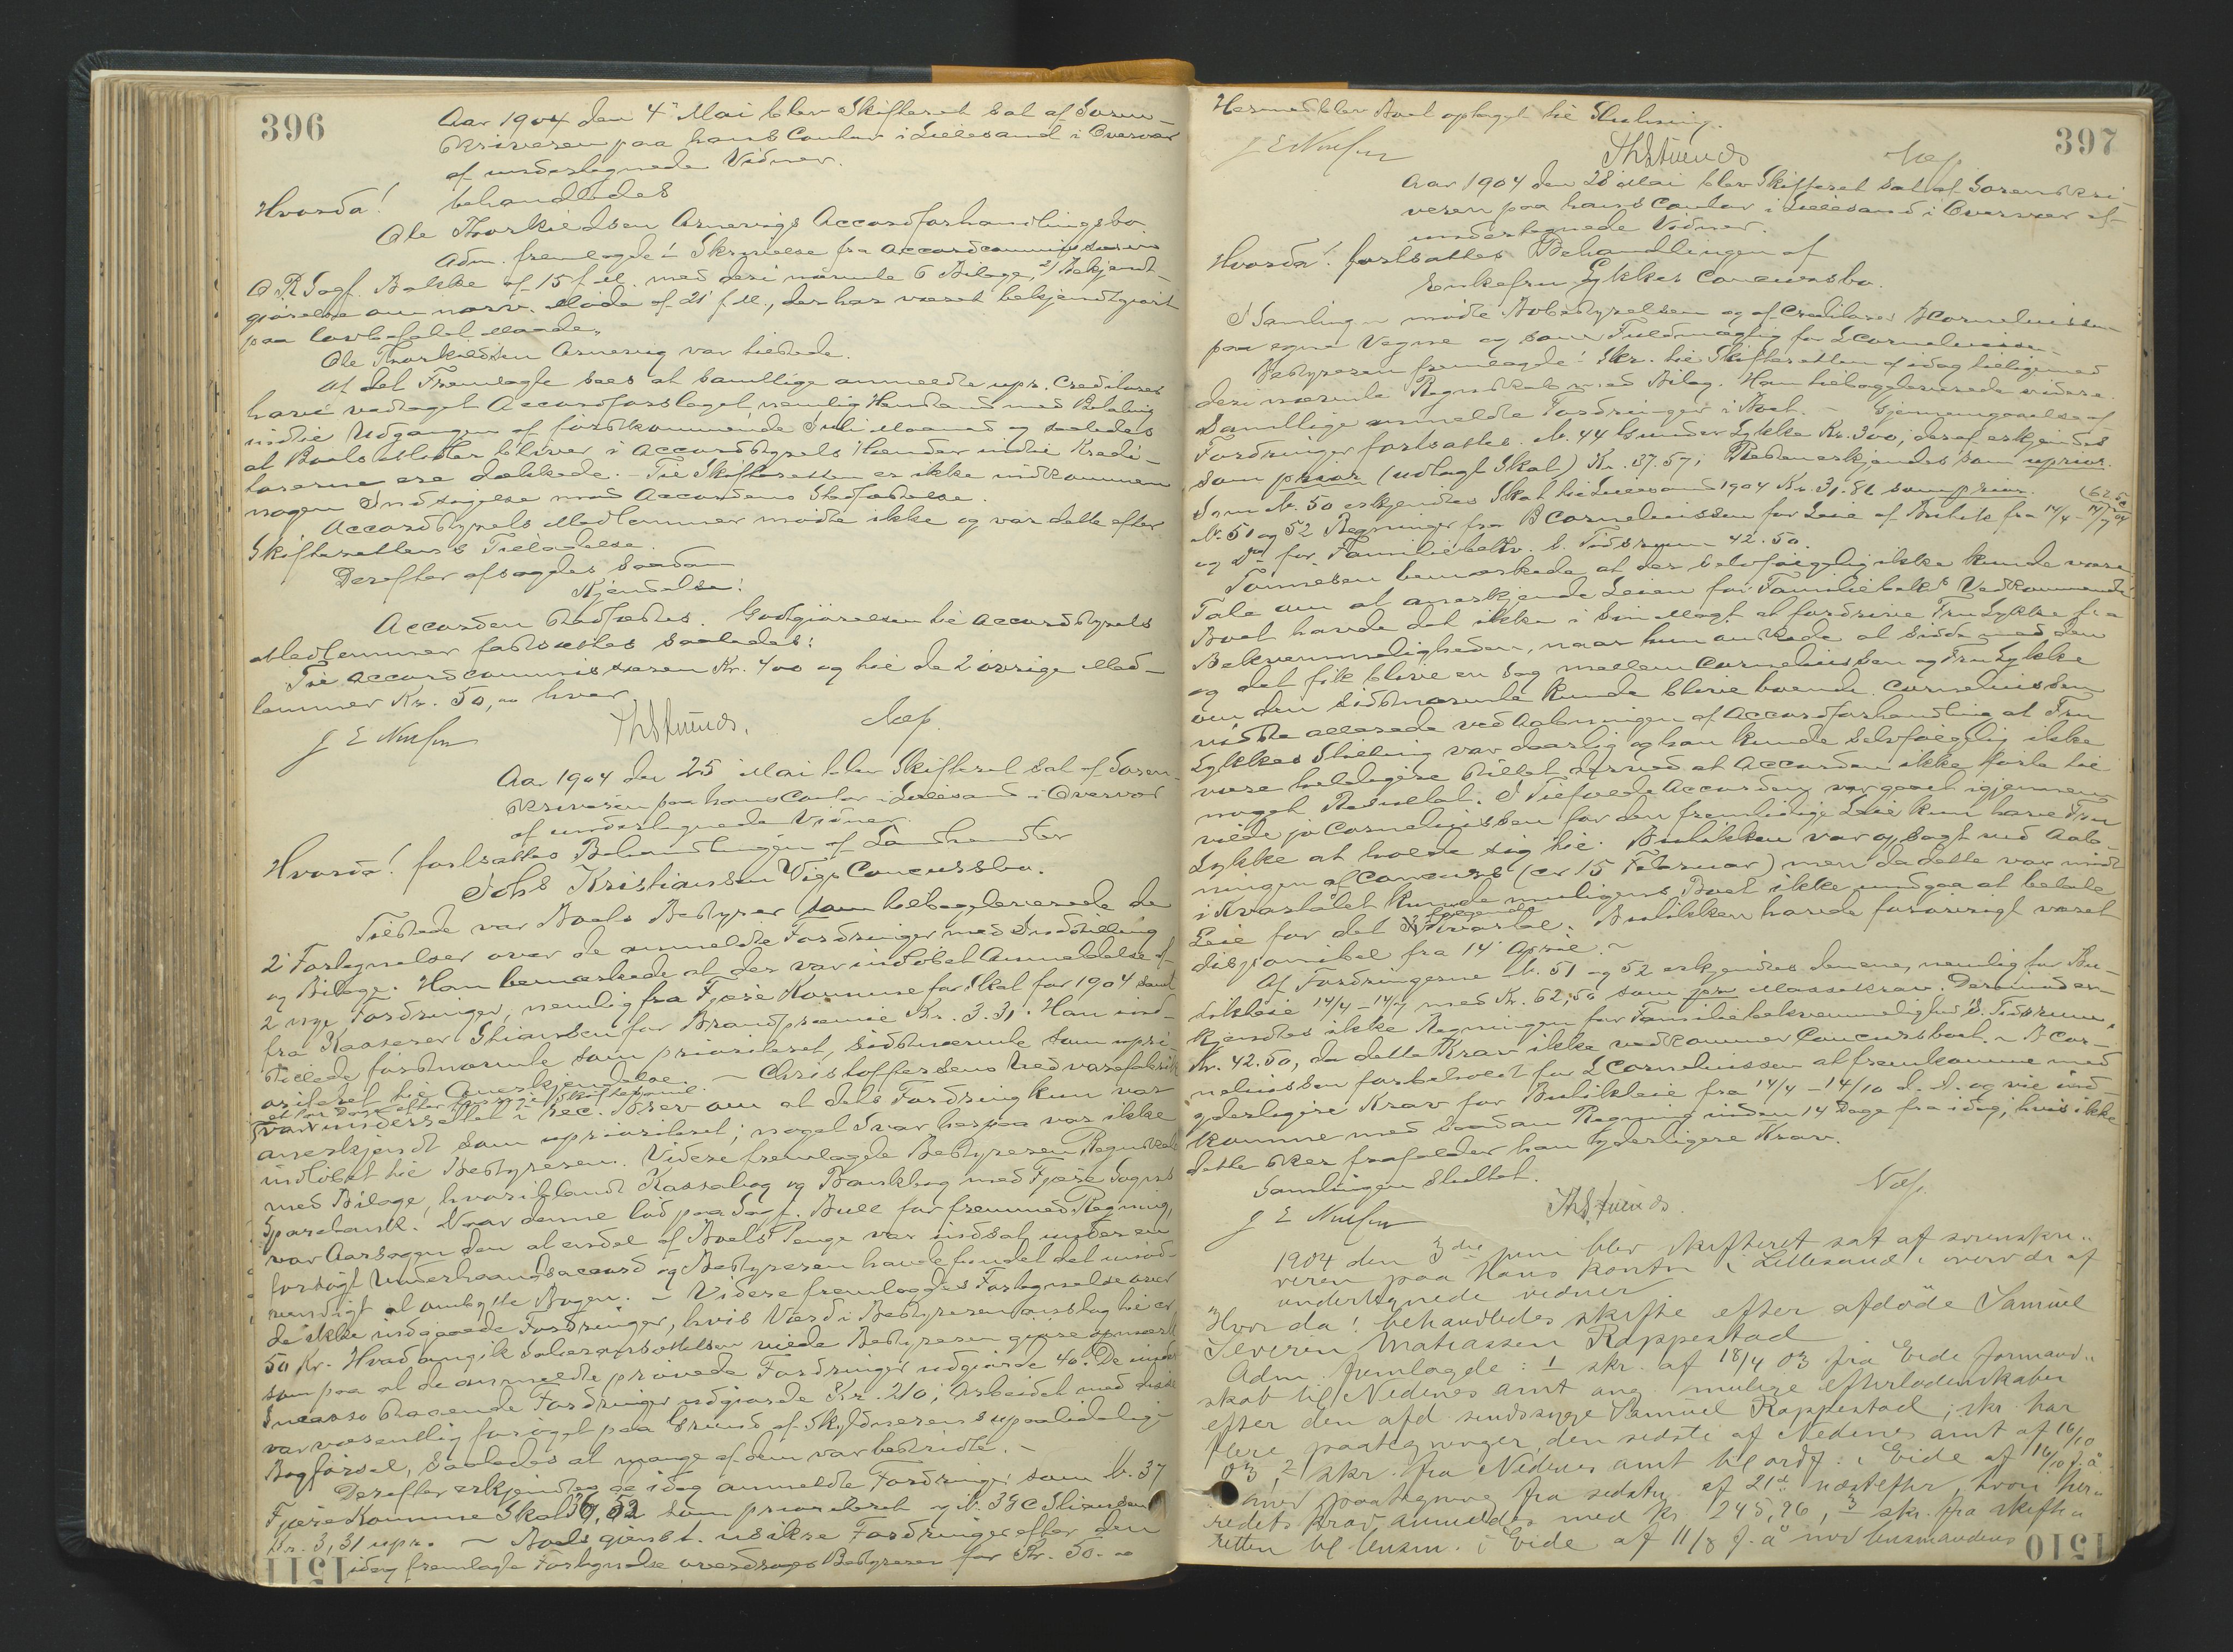 396
Aar 1904 den 4de Mai blev Skifteret sat af Soren-
skriveren paa hans Contor i Lillesand i Overvær
af undertegnede Vidner.
Hvorda! behandledes
Ole Thorkildsen Arnevigs Accordforhandlingsbo.
Adm. fremlagde 1 Skrivelse fra Accordcommissæren
O R Sagf. Bakke af 15 f. M. med deri nævnte 6 Bilage, 2) Bekjendt-
gjørelse om nærv. Møde af 21 f. M., der har været bekjendtgjort
paa lovbefalet Maade.
Ole Thorkildsen Arnevig var tilstede.
Af det Fremlagte saaes at samtlige anmeldte upr. Creditorer
have vedtaget Accordforslaget, nemlig Henstand med Betaling
indtil Udgangen af førstkommende Juli Maaned og saaledes
at Boets Midler bliver i Accordstyrets Hænder indtil Kredi-
torerne ere dækkede. - Til Skifteretten er ikke indkommen
nogen Indsigelse mod Accordens Stadfæstelse.
Accordstyrets Medlemmer mødte ikke og var dette efter
Skifterettens Tilladelse.
Derefter afsagdes saadan
Kjendelse:
Accorden stadfæstes. Godtgjørelsen til Accordstyrets
Medlemmer fastsættes saaledes:
Til Accordcommissæren Kr. 400 og til de 2 øvrige Med-
lemmer Kr. 50,00 hver.
J E Nielsen Næss.
Aar 1904 den 25 Mai blev Skifteret sat af Soren-
skriveren paa hans Contor i Lillesand i Overvær
af undertegnede Vidner.
Hvorda! fortsattes Behandlingen af Landhandler
Johs Kristiansen Vigs Concursbo.
Tilstede var Boets Bestyrer som tilbageleverede de
2 Fortegnelser over de anmeldte Fordringer med Indstilling
og Bilage. Han bemærkede at der var indløbet Anmeldelse af
2 nye Fordringer, nemlig fra Fjære Kommune for Skat for 1904 samt
fra Kasserer Stiansen for Brandpræmie Kr. 3.31. Han ind-
stillede førstnævnte som prioriteret, sidstnævnte som upri-
oriteret til Anerkjendelse. - Christoffersens Uldvarefabrik
et Par Dage efter forrige Skiftesamling
var underrettet i rec. Brev om at dets Fordring kun var
anerkjendt som uprioriteret; noget Svar herpaa var ikke
indløbet til Bestyreren. Videre fremlagde Bestyreren Regnskab
med Bilage, hvoriblandt Kassabog og Bankbog med Fjære Sogns
Sparebank. Naar denne lød paa Sagf. Bull for fremmed Regning,
var Aarsagen den at endel af Boets Penge var indsat under en
forsøgt Underhaandsaccord og Bestyreren havde fundet det unød-
vendigt at ombytte Bogen. - Videre fremlagdes Fortegnelse over
de ikke indgaaede Fordringer, hvis Værdi Bestyreren anslog til ca.
50 Kr. Hvad angik Salæransættelsen vilde Bestyreren gjøre opmærk-
som paa at de anmeldte prøvede Fordringer udgjorde 40. De under
Incasso staaende Fordringer udgjorde Kr. 210; Arbeidet med disse
var væsentlig forøget paa Grund af Skyldnerens upaalidelige
Bogførsel, saaledes at mange af dem var bestridte. -
Derefter erkjendtes de idag anmeldte Fordringer som No. 37
Fjære Kommune Skat 36,52 som prioriteret og No. 38 C Stiansen
Kr. 3,31 upr. - Boets gjenst. usikre Fordringer efter den
idag fremlagte Fortegnelse overdrages Bestyreren for Kr. 50.00
1511
397
Hermed blev Boet optaget til Slutning.
J E Nielsen Næss
Aar 1904 den 28 Mai blev Skifteret sat af Sorenskri-
veren paa hans Contor i Lillesand i Overvær af
undertegnede Vidner.
Hvorda! fortsattes Behandlingen af
Enkefru Lykkes Concursbo.
I Samlingen mødte Bobestyrelsen og af Creditorer B Corneliussen
paa egne Vegne og som Fuldmægtig for L Corneliussen.
Bestyreren fremlagde! Skr. til Skifteretten af idag tilligemed
deri nævnte Regnskab med Bilag. Han tilbageleverede videre
samtlige anmeldte Fordringer i Boet. - Gjennemgaaelse af
Fordringer fortsattes. No. 44 Gunder Lykke Kr. 300; deraf erkjendes
som prior (udlagt Skat) Kr. 37.57; Resten erkjendes som uprior.
Som No. 50 erkjendtes Skat til Lillesand 1904 Kr. 31.86 som prior.
No. 51 og 52 Regninger fra B Corneliussen for Leie af Butik fra 14/4 - 14/7 04 (62.50
og do for Familiebekv. s. Tidsrum 42.50.
Tønnesen bemærkede at der selvfølgelig ikke kunde være
Tale om at anerkjende Leien for Familiebekvs Vedkommende.
Boet havde det ikke i sin Magt at fordrive Fru Lykke fra
Bekvemmeligheden, naar hun ønskede at sidde med den
og det fik blive en Sag mellem Corneliussen og Fru Lykke
om den sidstnævnte kunde blive boende. Corneliussen
vidste allerede ved Aabningen af Accordforhandling at Fru
Lykkes Stilling var daarlig og han kunde selvfølgelig ikke
være heldigere stillet derved at Accorden ikke førte til
noget Resultat. I Tilfælde Accorden var gaaet igjennem
vilde jo Corneliussen for den fremtidige Leie kun have Fru
Lykke at holde sig til. Butikken var opsagt ved Aab-
ningen af Concurs (ca 15 Februar) men da dette var midt
i Kvartalet kunde muligens Boet ikke undgaa at betale
Leie for det følgende Kvartal. Butikken havde forøvrigt været
disponibel fra 14 April. -
Af Fordringerne No. 51 og 52 erkjendtes den ene, nemlig for Bu-
tikleie 14/4 - 14/7 med Kr. 62,50 som Massekrav. Derimod er-
kjendtes ikke Regningen for Familiebekvemmelighed s. Tidsrum,
Kr. 42.50, da dette Krav ikke vedkommer Concursboet. - B Cor-
neliussen forbeholdt for L Corneliussen at fremkomme med
yderligere Krav for Butikleie fra 14/4 - 14/10 d. A. og vil ind-
komme med saadan Regning inden 14 Dage fra idag; hvis ikke
dette sker frafalder han yderligere Krav.
Samlingen sluttet.
J E Nielsen Næss.
1904 den 3die juni blev skifteret sat af sorenskri-
veren paa hans kontor i Lillesand i overvær af
undertegnede vidner
Hvorda! behandledes skifte efter afdøde Samuel
Severin Mathiassen Rappestad
Adm. fremlagde: 1 skr. af 18/4 03 fra Eide formand-
skab til Nedenes amt ang. mulige efterladenskaber
efter den afd. sindssyge Samuel Rappestad; skr. har
flere paategninger, den sidste af Nedenes amt af 16/10
03, 2 skr. fra Nedenes amt til ordf. i Eide af 16/10 f. å.
med paategning fra sidstn. af 21de næstefter, hvori her-
redets krav anmeldes med kr. 245,96, 3 skr. fra skifte-
retten til lensm. i Eide af 11/8 f. å. med lensmandens
1510